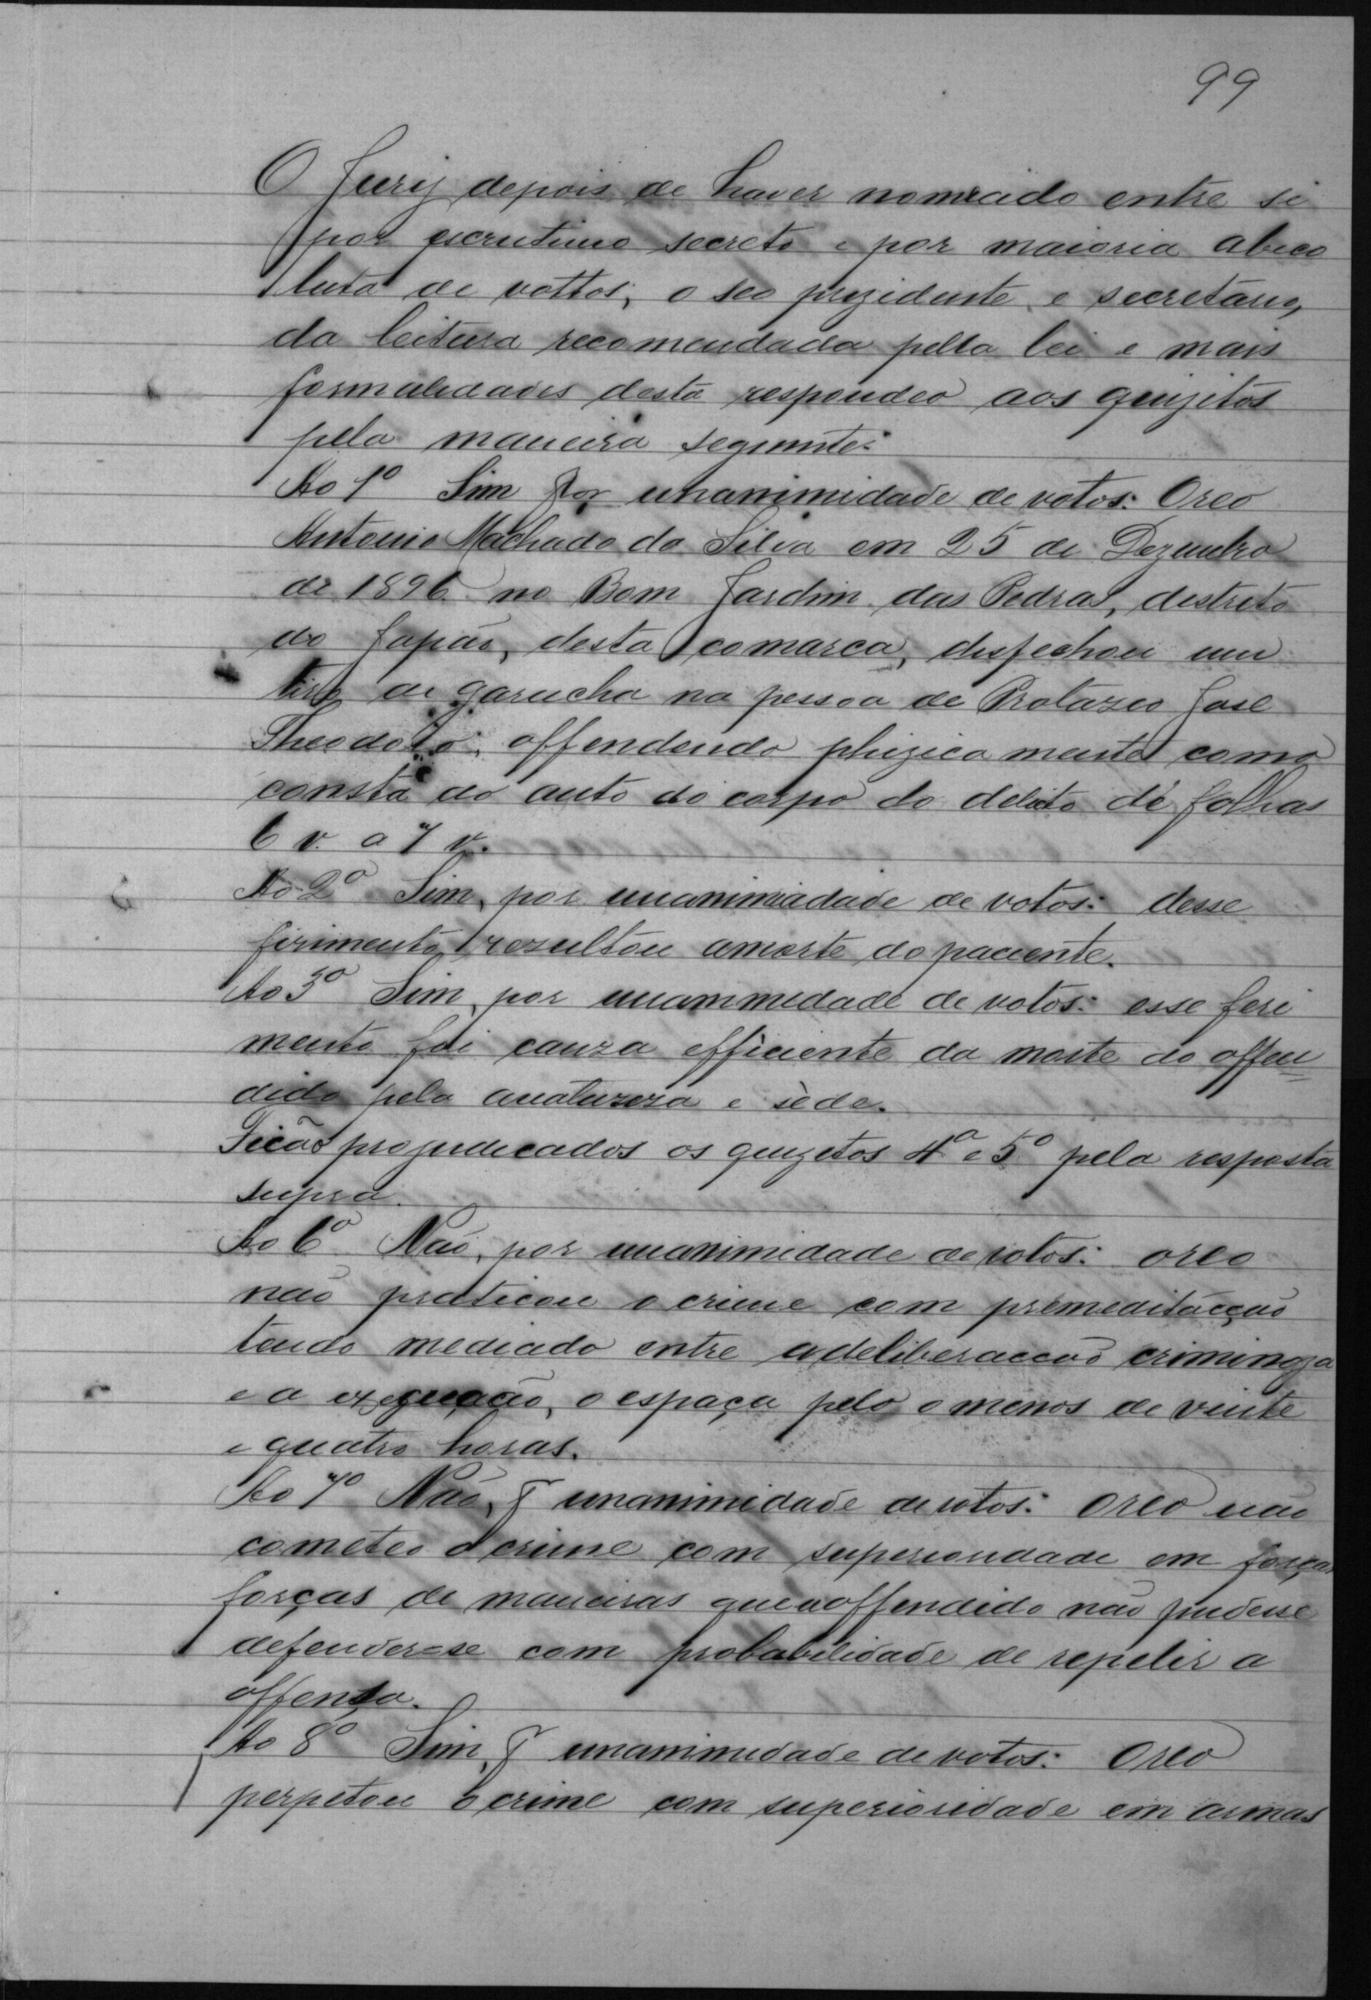 99
O Jury depois de haver nomeado entre si
por escrutinio secreto e por maioria abeço
luta de vottos, o seo prezidente e secretario,
da leitura recomendada pella lei e mais
formaledades desta respondeo aos quizitos
pela maneira seguinte:
Ao 1º Sim por unanimidade de votos: Oreo
Antonio Machado da Silva em 25 de Dezembro
de 1896 no Bom Jardim das Pedras, destrito
do Japão, desta comarca, desfechou um
tiro de garucha na pessoa de Protazio José
Theodoro: offendendo phizica mente como
consta do auto do corpo do delito dé folhas
6 v. a 7 v.
Ao 2º Sim, por unanimidade de votos: desse
firimento rezultou amorte do paciente.
Ao 3º Sim, por unanimedade de votos: esse feri
mento foi cauza efficiente da morte do offen=
dido pela anatureza e séde.
Ficão projudecados os quizetos 4º e 5º pela resposta
supra.
Ao 6º Não, por unanimidade de votos: oreo
não praticou o crime com premeditacção
tendo mediado entre adeliberaccão criminoza
e a ezequção, o espaça pelo o menos de vinte
e quatro horas.
Ao 7º Não, p unanimidade devotos: oreo não
cometeo o crime com superioridade em força
forças de maneiras que o offendido não pudesse
defender=se com probabilidade de repelir a
offensa.
Ao 8º Sim, p unanimidade de votos: Oreo
perpetou o crime com superioridade em armas